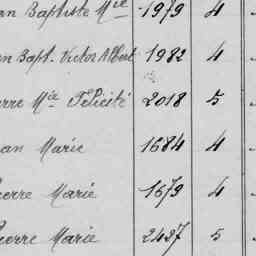 an Baptiste Mie 1979 4
en Bapt. Victor Albert 1982 4
erre Mie Félicité 2018 5
ean Marie 1684 4
ierre Marie 1679 4
Pierre Marie 2427 5